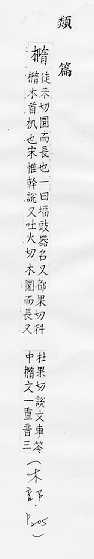 類篇
橢
徒禾切圜而長也一曰橢豉器名又都果切科
橢木首杋也宋惟幹說又吐火切木圜而長又
杜果切說文車笭
中橢文一重音三
(木部.P205)